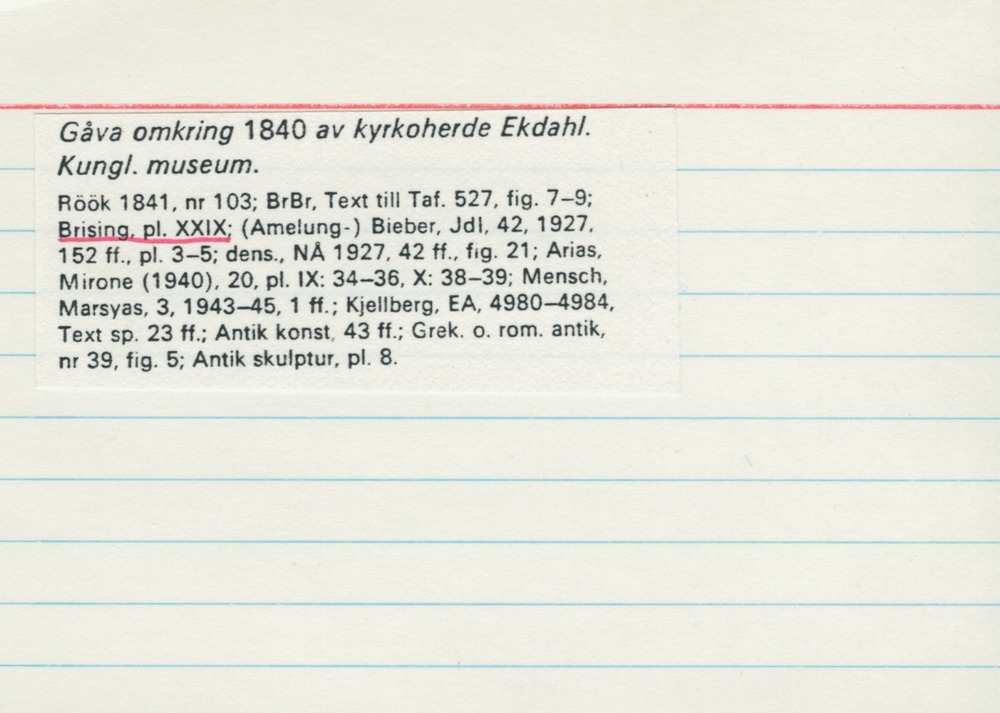 Gåva omkring 1840 av kyrkoherde Ekdahl.
Kungl. museum.
Röök 1841, nr 103; BrBr, Text till Taf. 527, fig. 7–9;
Brising, pl. XXIX; (Amelung-) Bieber, JdI, 42, 1927,
152 ff., pl. 3–5; dens., NÅ 1927, 42 ff., fig. 21; Arias,
Mirone (1940), 20, pl. IX: 34–36, X: 38–39; Mensch,
Marsyas, 3, 1943–45, 1 ff.; Kjellberg, EA, 4980–4984,
Text sp. 23 ff.; Antik konst, 43 ff.; Grek. o. rom. antik,
nr 39, fig. 5; Antik skulptur, pl. 8.